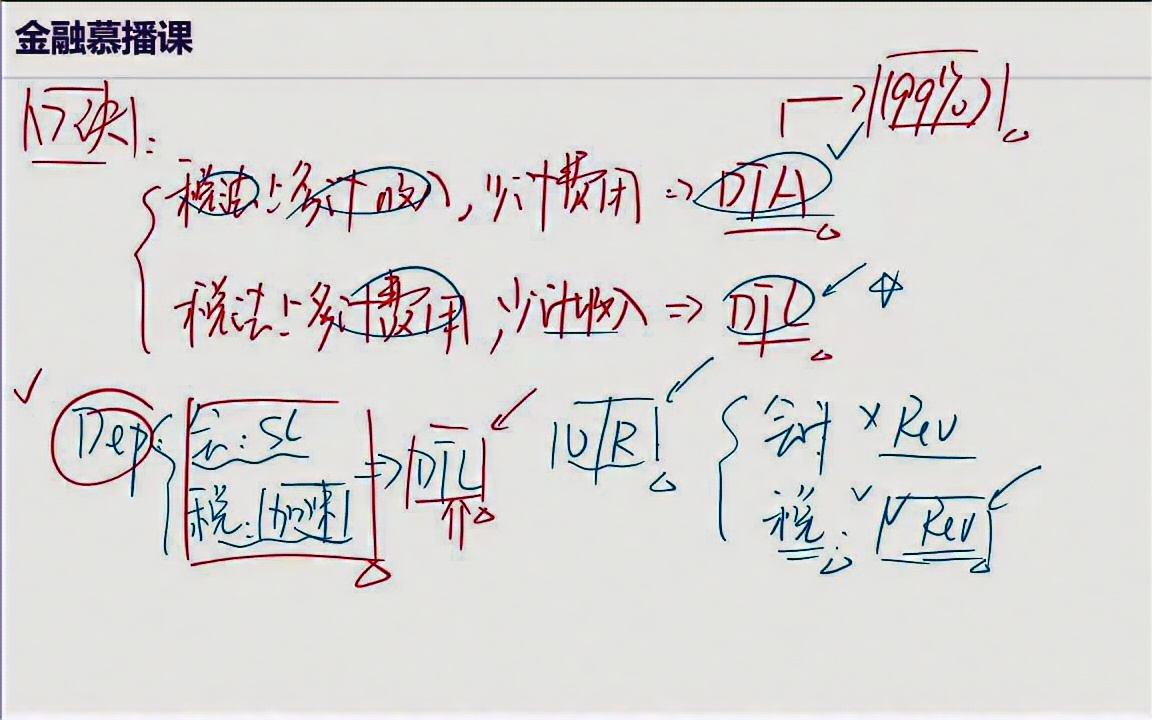 金融慕播课
口诀:
(99%)
税法上多计收入,少计费用 => DTA
税法上多计费用,少计收入 => DTL
Dep: 会: SL => DTL ↑
税: 加速
U/R
会计 × Rev
税: √ Rev